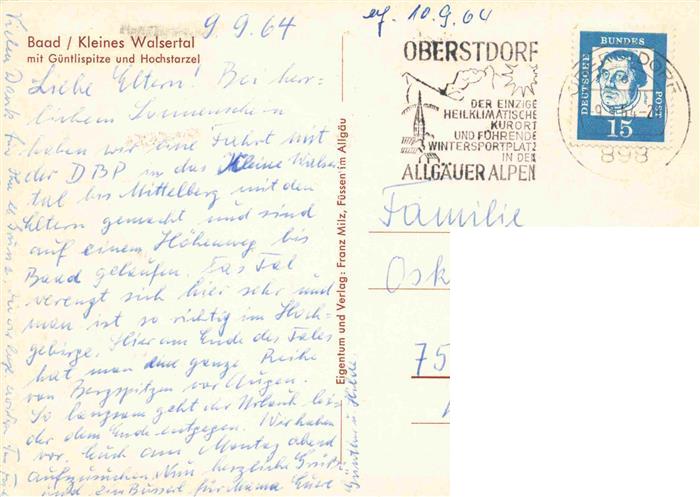 9.9.64
Baad / Kleines Walsertal
mit Güntlispitze und Hochstarzel
Liebe Eltern! Bei herr-
lichem Sonnenschein
haben wir eine Fahrt mit
der DBP in das Kleine Walser-
tal bis Mittelberg mit den
Eltern gemacht und sind
auf einem Höhenweg bis
Baad gelaufen. Das Tal
verengt sich hier sehr und
man ist so richtig im Hoch-
gebirge. Hier am Ende des Tales
hat man eine ganze Reihe
von Bergspitzen vor Augen.
So langsam geht der Urlaub lei-
der dem Ende entgegen. Wir haben
vor, Euch am Montag abend
aufzusuchen. Nun herzliche Grüße
und ein Bussel für Mama Eure
Günther u. Hilde.
Vielen Dank für
Eigentum und Verlag: Franz Milz, Füssen im Allgäu
10.9.64
OBERSTDORF
DER EINZIGE
HEILKLIMATISCHE
KURORT
UND FÜHRENDE
WINTERSPORTPLATZ
IN DEN
ALLGÄUER ALPEN
DEUTSCHE BUNDESPOST
15
898
Familie
Osk
75